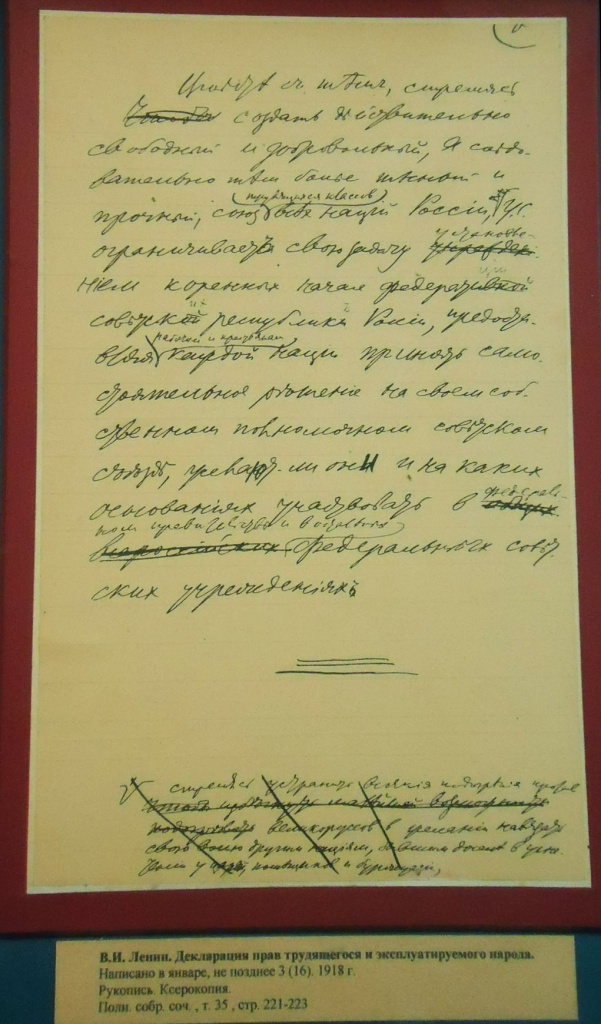 вместе с тем, стремясь
создать действительно
свободный и добровольный, а следо-
вательно тем более тесный и
трудящихся классов
прочный, союз всех наций России, У.С.
ограничивается свою задачу установле-
нием коренных начал федерации
советских республик России, предоста-
рабочим и крестьянам
вляя каждой нации принять само-
стоятельное решение на своем соб-
ственном полномочном советском
съезде, желают ли они и на каких
основаниях участвовать в федераль-
ном правительстве и в остальных
федеральных совет-
ских учреждениях.
стремясь устранить всякия подозрения
великоруссов в желании навязать
свою волю другим нациям,
помещиков и буржуазии,
В.И. Ленин. Декларация прав трудящегося и эксплуатируемого народа.
Написано в январе, не позднее 3 (16). 1918 г.
Рукопись. Ксерокопия.
Полн. собр. соч. , т. 35 , стр. 221-223